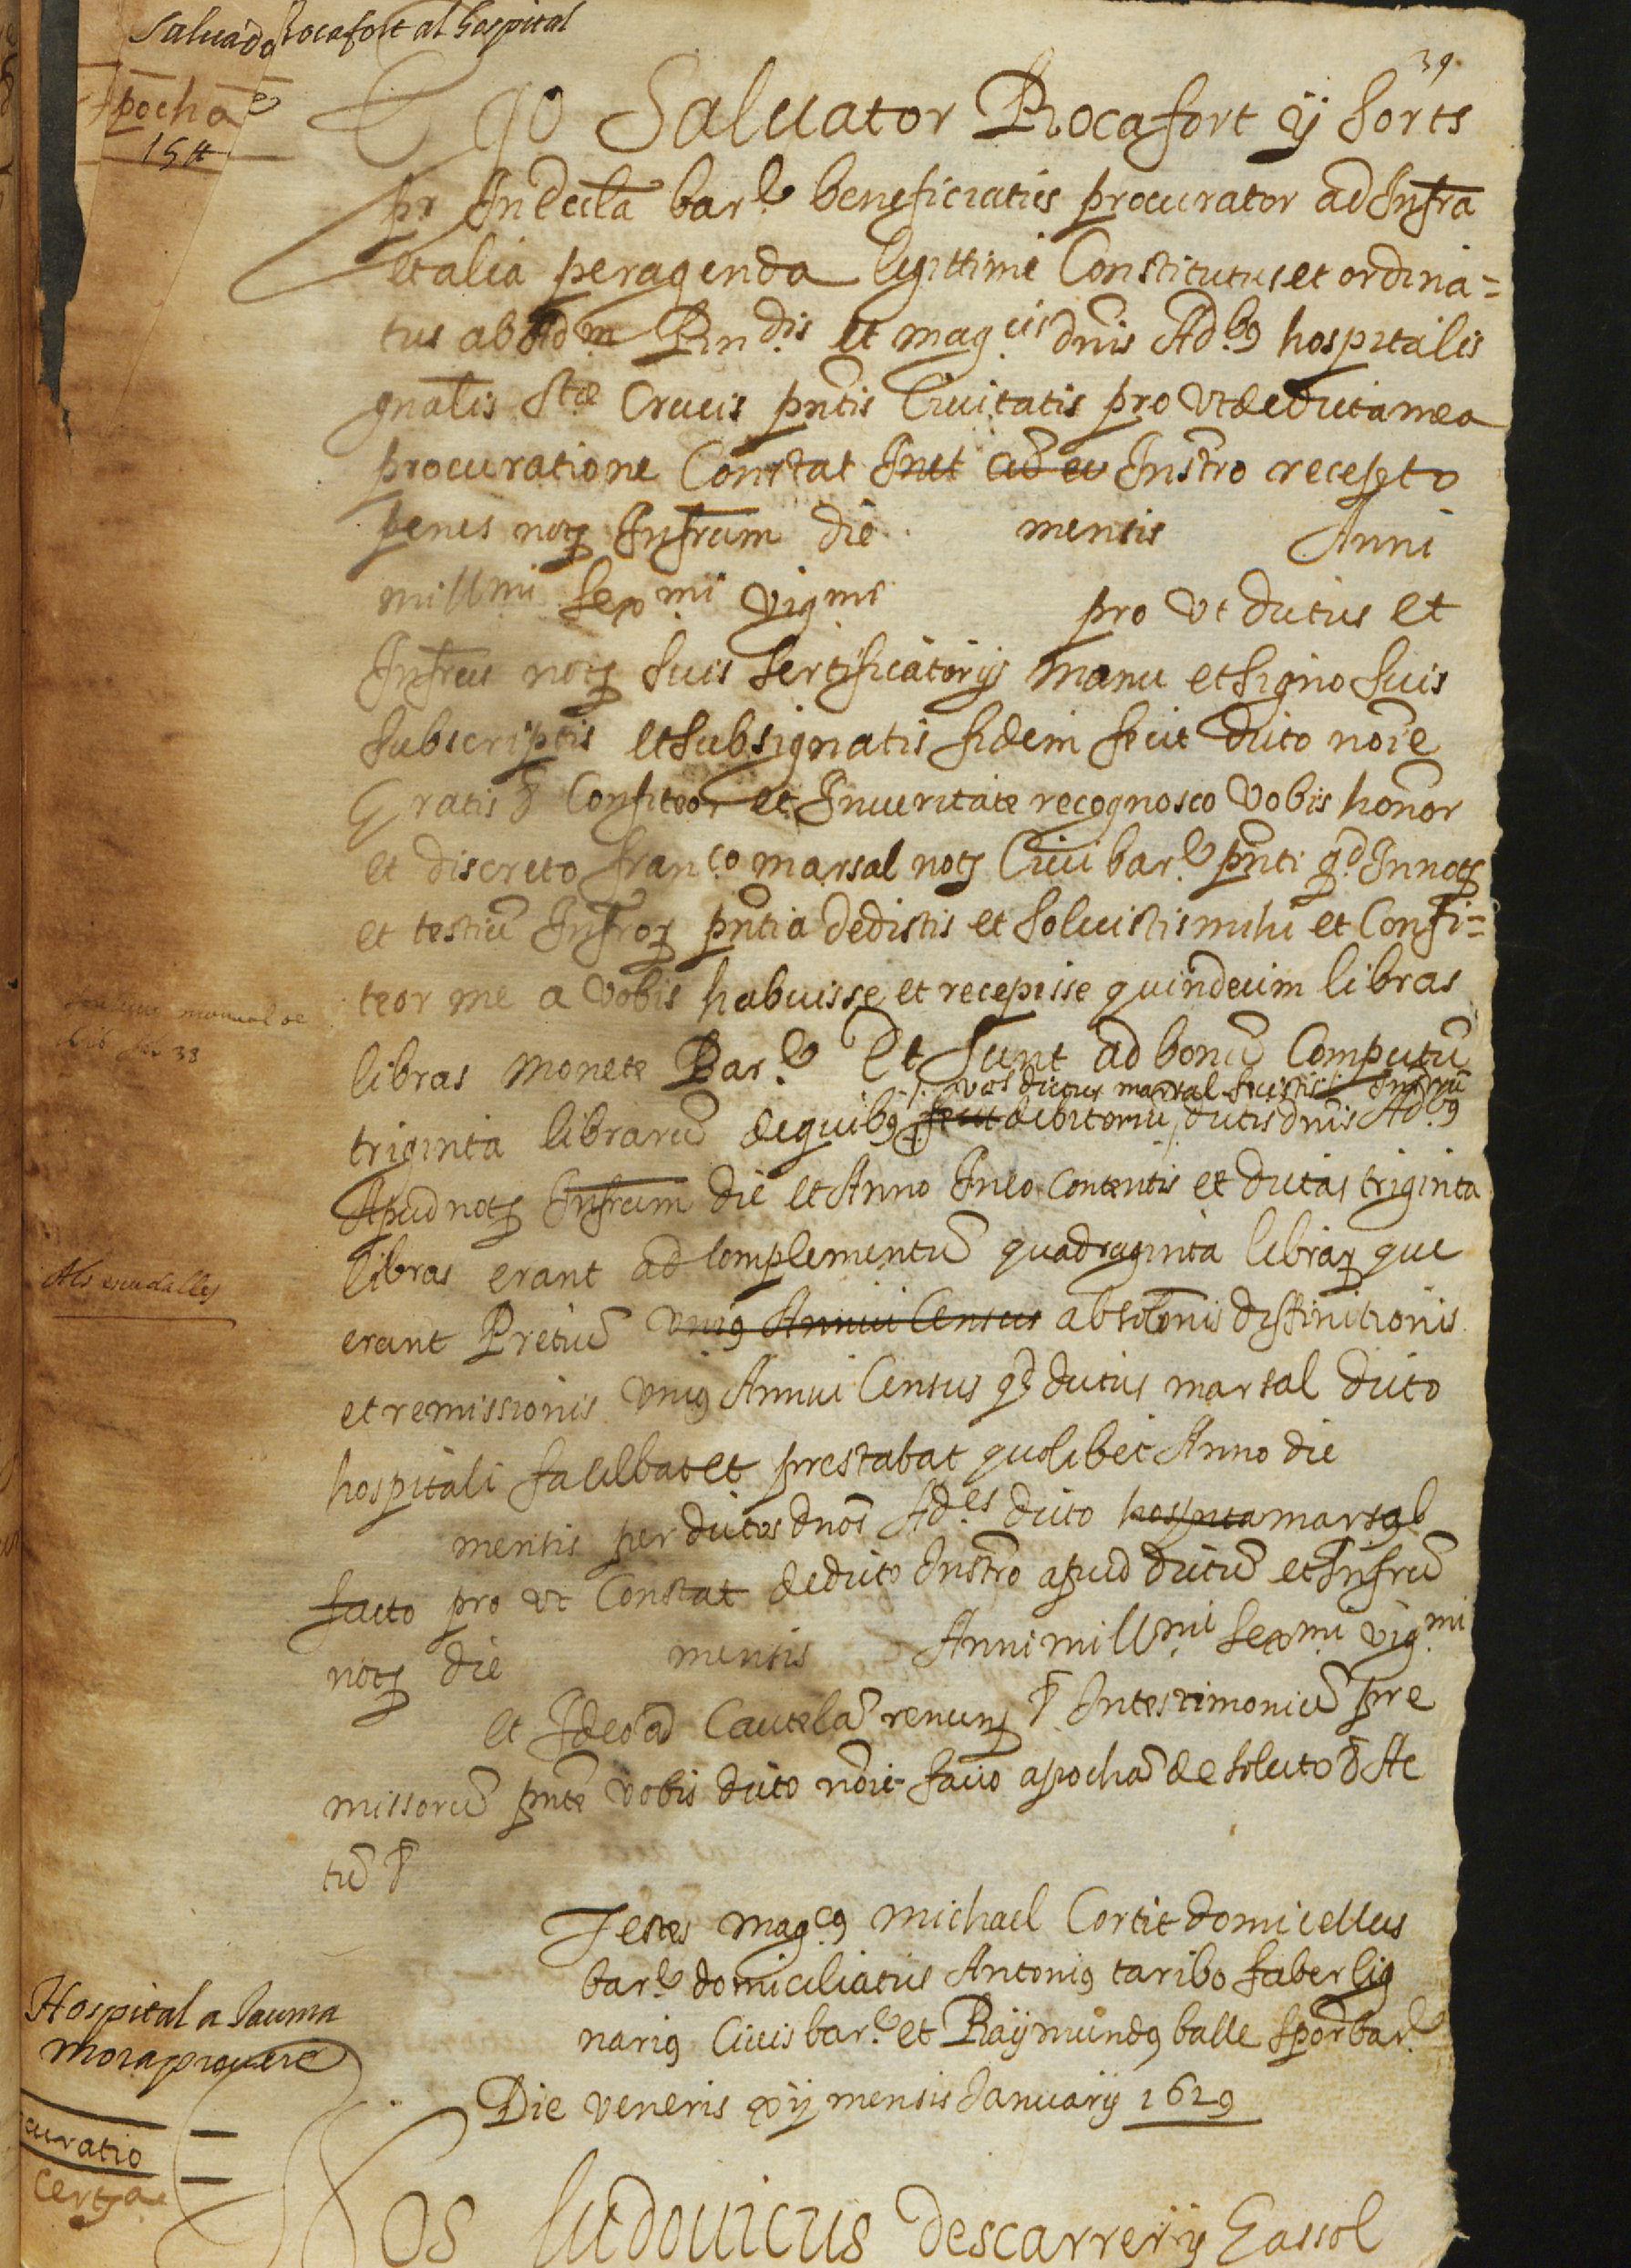 Saluado Rocafort al hospital
39
Apocha
15 ₶
Ego Saluator Rocafort y sorts
pr In Ecclā barᵉ beneficiatus procurator ad Infrā
et alia peragenda legittime Constitutus et ordina=
tus ab Adm Rndis et magcis dnis Adbꝰ hospitalis
gnalis Stæ Crucis pntis Ciuitatis pro vt de dicta mea
procuratione Constat Instro recepto
penes notm Infrum die mensis Anni
millmi sexmi vigmi pro vt dictus et
Infrus nots suis sertificatorijs manu et signo suis
subscriptis et subsignatis fidem fecit dicto noie
Gratis & Confiteor et Inueritate recognosco vobis honor
et discreto Franco marsal noto Ciui barᵉ pnti qd In noty
et testiū Infror pntia dedistis et soluistis mihi et Confi=
teor me a vobis habuisse et recepisse quindecim libras
libras monete Barᵉ Et sunt ad bonū Computū
vos dictus marsal fecistis Instrū
triginta librarū de quibꝰ fecit debitoriū dictis dnis Adbꝰ
Apud notm Infrum die et Anno In eo Contentis et dictas triginta
libras erant ad Complementū quadraginta librar que
erant Pretiū vniꝰ Annui Census absolonis diffinitionis
et remissionis vniꝰ Annui Census qd dictus marsal dicto
hospitali faciebat et prestabat quolibet Anno die
mensis per dictos dnos Ades dicto hospita marsal
facto pro vt Constat de dicto Instro apud dictū et Infrū
notm die mensis Anni millmi sexmi vigmi
et Ideo ad Cautelā renun & In testimoniū pre
missorū pnte vobis dicto noie facio apochā de soluto & Ac
tū &
Als encedalles
Testes magcꝰ michael Cortit domicellus
barᵉ domiciliatus Antoniꝰ taribo faber lig
nariꝰ Ciuis barᵉ et Raijmundꝰ balle spor barᵉ
Die veneris xij mensis Januarij 1629
Hospital a Jauma
mora prouere
curatio
Certa
Nos ludouicus descarrerijs Gassol